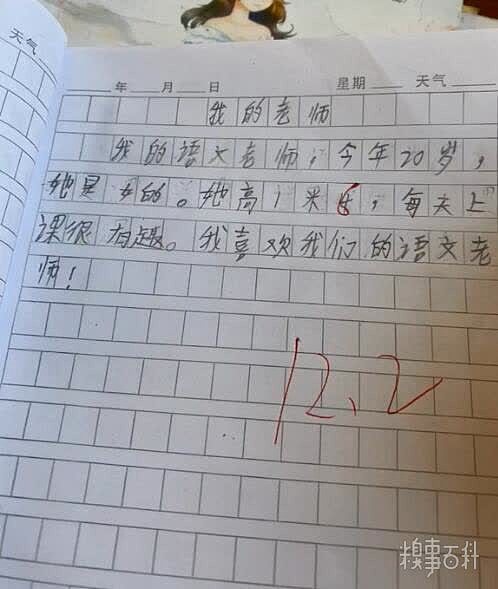 天气
年 月 日 星期 天气
我的老师
我的语文老师,今年20岁,
她是女的。她高1米6,每天上
课很有趣。我喜欢我们的语文老
师!
12.2
糗事百科